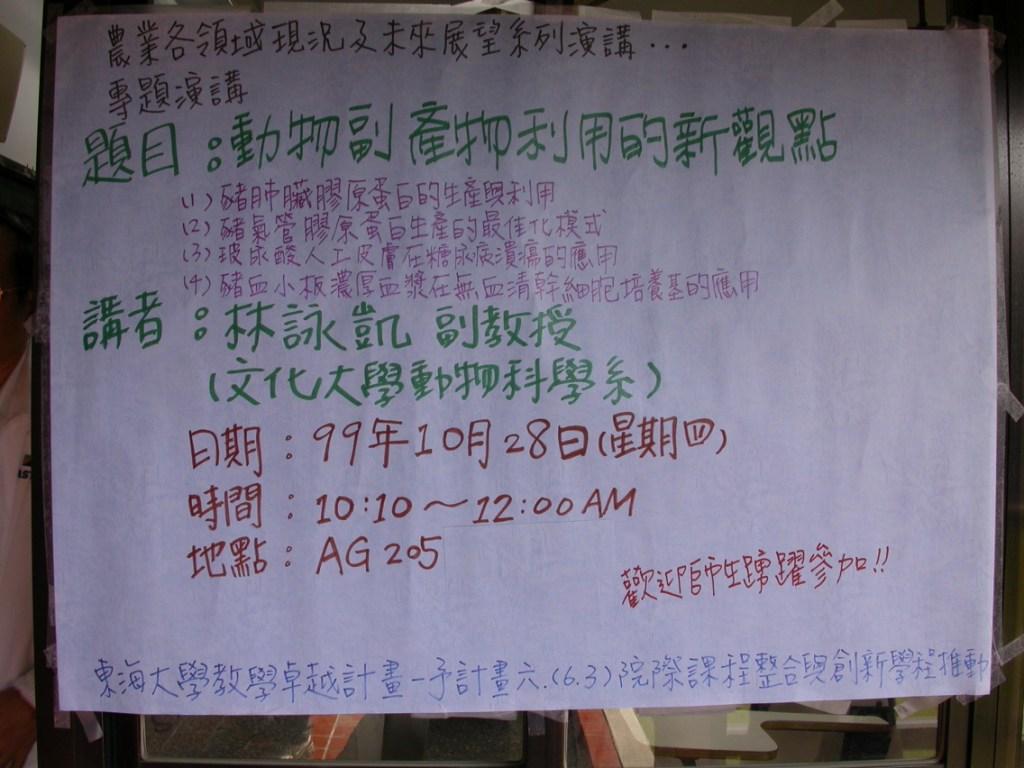 農業各領域現況及未來展望系列演講...
專題演講
題目:動物副產物利用的新觀點
(1) 豬肺臟膠原蛋白的生產與利用
(2) 豬氣管膠原蛋白生產的最佳化模式
(3) 玻尿酸人工皮膚在糖尿病潰瘍的應用
(4) 豬血小板濃厚血漿在無血清幹細胞培養基的應用
講者:林詠凱 副教授
(文化大學動物科學系)
日期:99年10月28日(星期四)
時間:10:10~12:00 AM
地點:AG205
歡迎師生踴躍參加!!
東海大學教學卓越計畫-子計畫六.(6.3)院際課程整合與創新學程推動